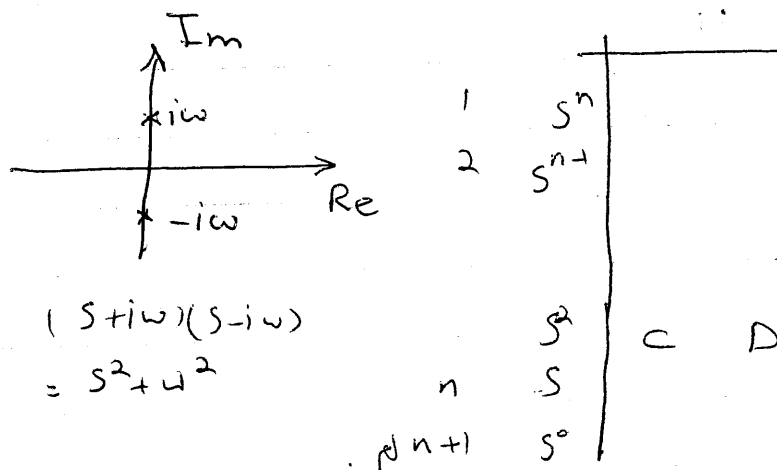 Im
iω
Re
-iω
(S+iω)(S-iω)
= S²+ω²
1 Sⁿ
2 Sⁿ⁻¹
S² C D
n S
n+1 S⁰